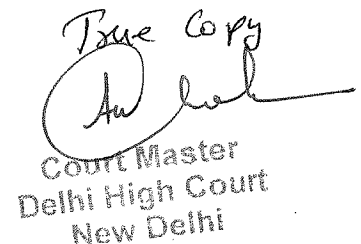 True Copy
Court Master
Delhi High Court
New Delhi